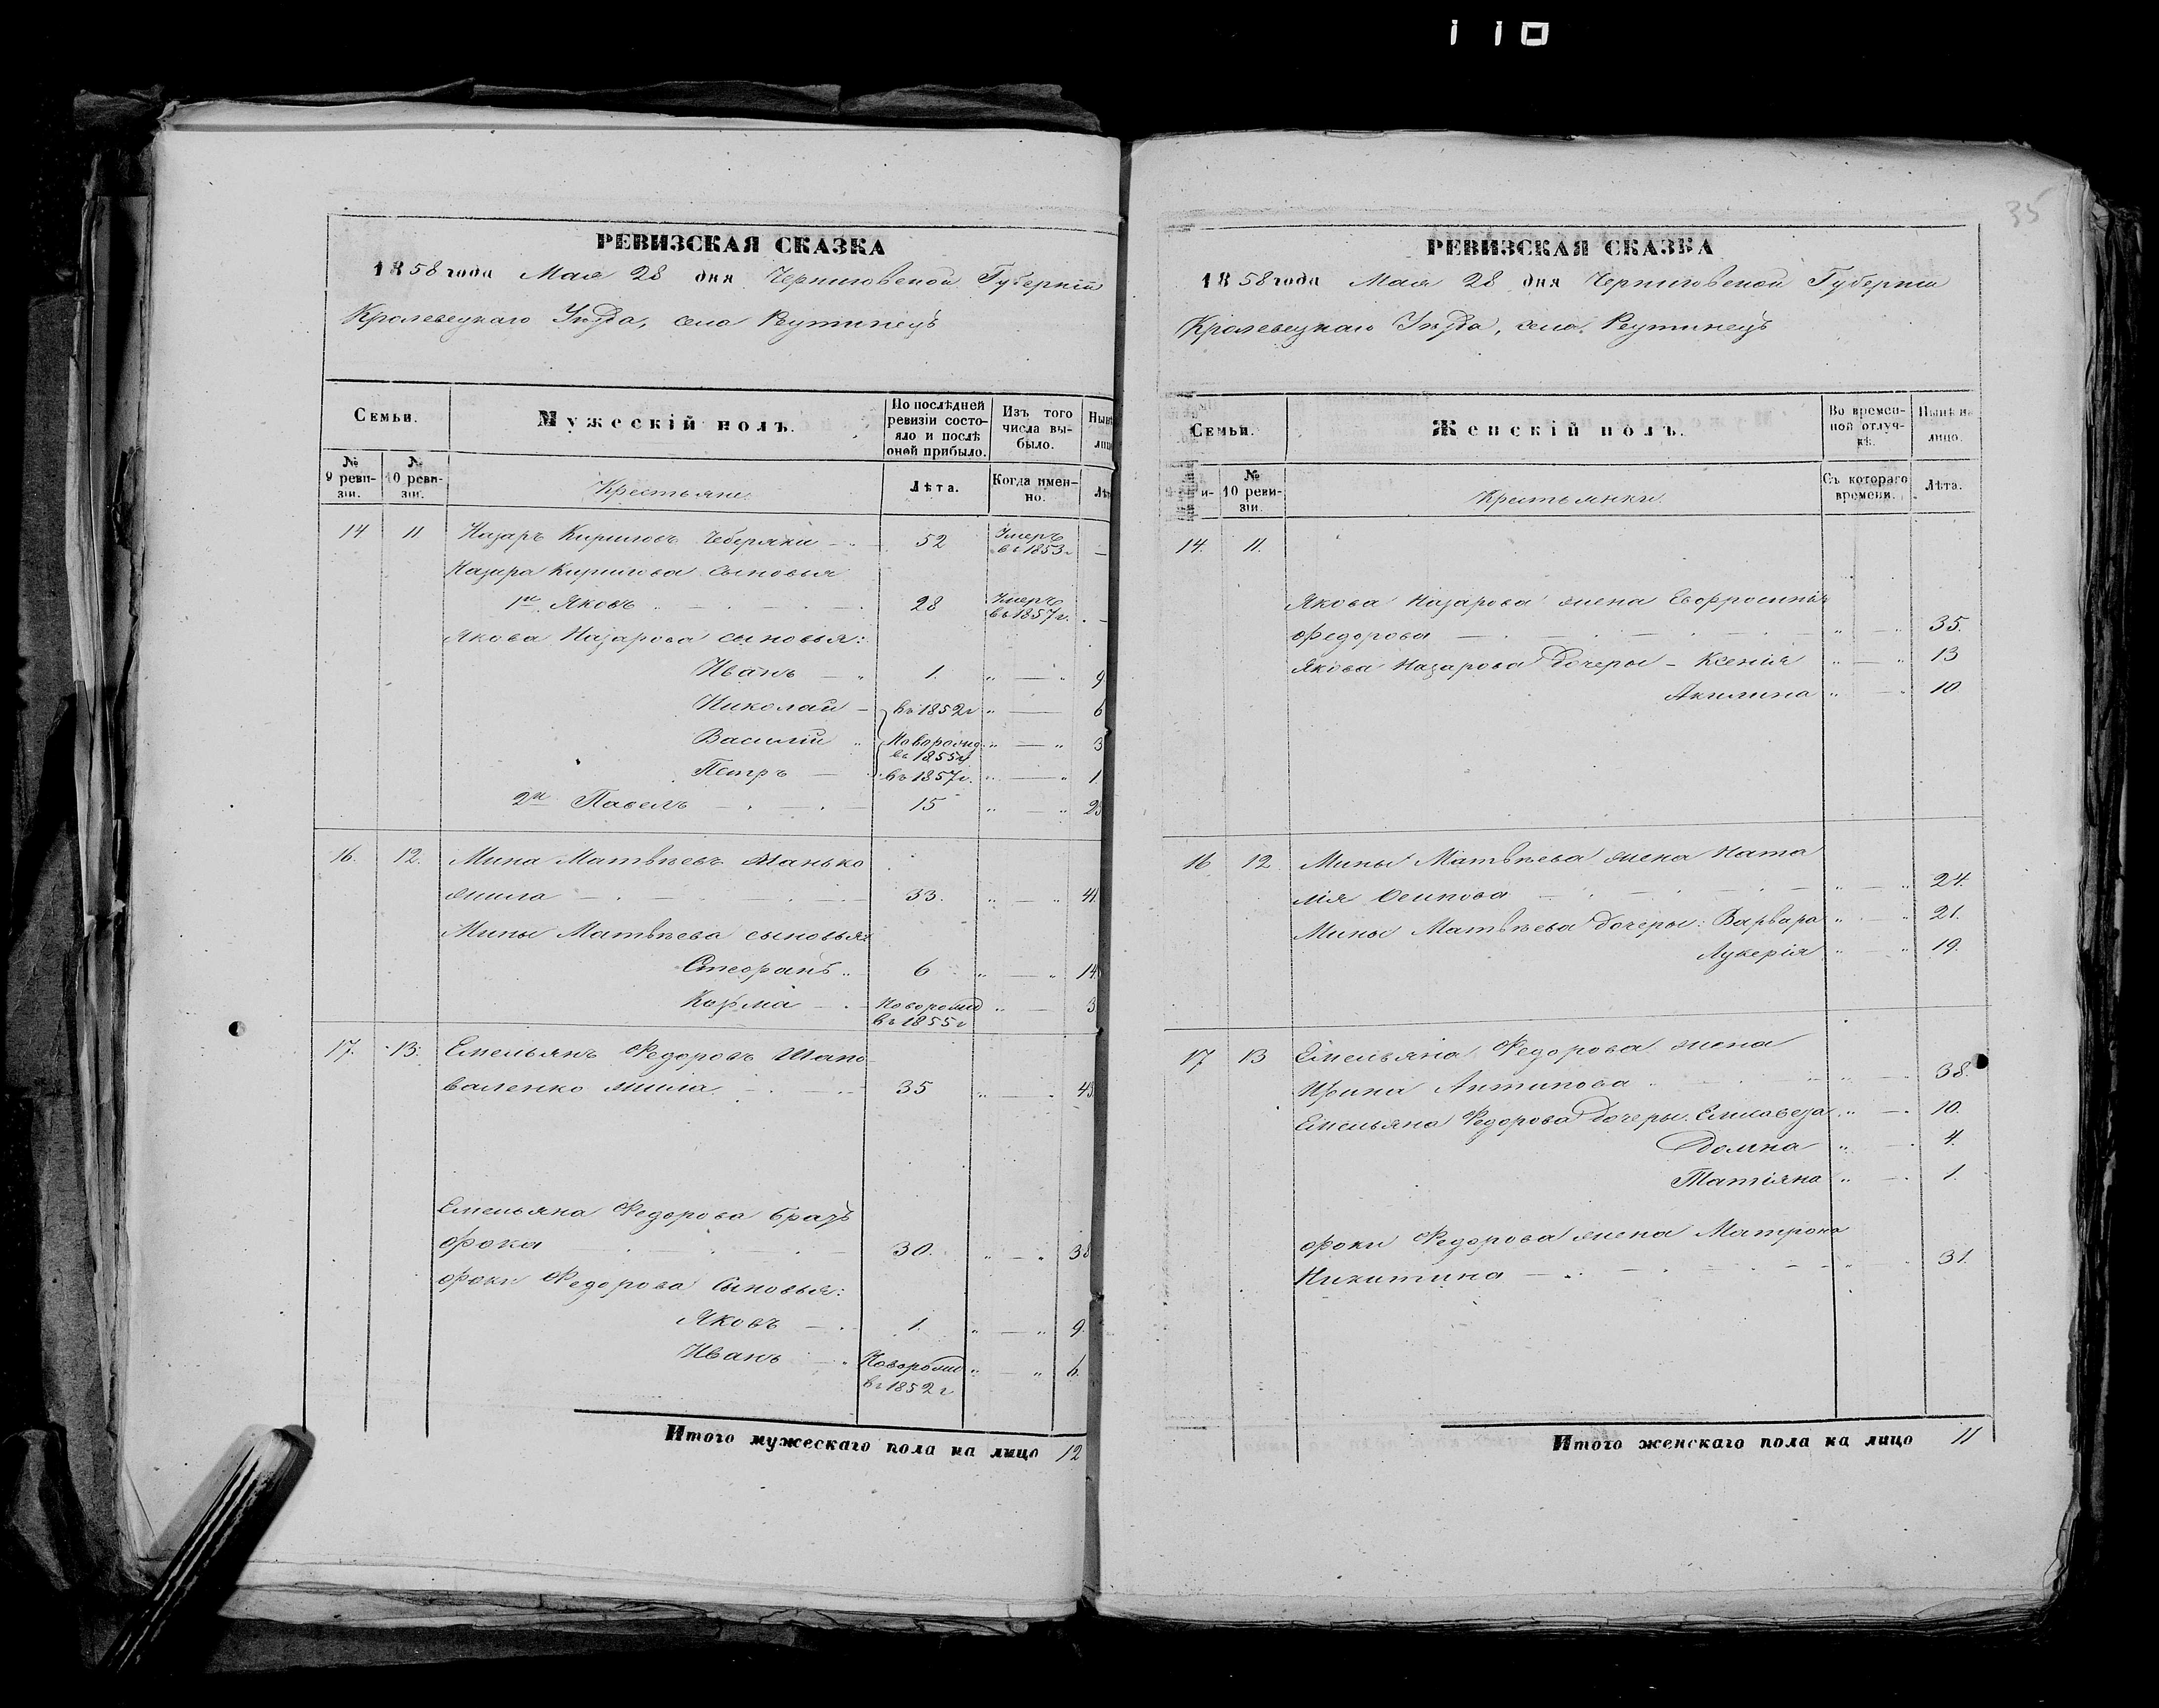 110
РЕВИЗСКАЯ СКАЗКА
1858 года Мая 28 дня Черниговской Губерніи
Кролевецкаго Уѣзда, села Реутинецъ
Семьи.
Мужескій полъ.
По послѣдней ревизіи состояло и послѣ оной прибыло.
Изъ того числа выбыло.
№ 9 ревизіи.
№ 10 ревизіи.
Крестьяне
Лѣта.
Когда именно.
14 11 Назаръ Кириловъ 52 Умеръ въ 1853г —
Назара Кирилова сыновья
1й Яковъ 28 Умеръ въ 1857г. —
Якова Назарова сыновья:
Иванъ 1. 9
Николай въ 1852г 6
Василій Новорожд. въ 1855г 3
Петръ въ 1857г. 1
2й Павелъ 15 23
16. 12. Мина Матвѣевъ Манько
33. 41
Мины Матвѣева сыновья
Стефанъ 6 14
Козма Новорожд въ 1855г 3
17. 13. Емельянъ Федоровъ Шапо
валенко 35 43
Емельяна Федорова братъ
Фока 30. 38
Фоки Федорова сыновья:
Яковъ 1. 9.
Иванъ Новорожд въ 1852г 6.
Итого мужескаго пола на лицо 12
35
РЕВИЗСКАЯ СКАЗКА
1858 года Мая 28 дня Черниговской Губерніи
Кролевецкаго Уѣзда, села Реутинецъ
Семьи.
Женскій полъ.
Во временной отлучкѣ.
Нынѣ на лицо.
№ 10 ревизіи.
Крестьянки.
Съ котораго времени.
Лѣта.
14. 11.
Якова Назарова жена Евфросинія
Федорова 35.
Якова Назарова дочери - Ксенія 13
Акилина 10
16 12. Мины Матвѣева жена Ната
лія Осипова 24.
Мины Матвѣева дочери: Варвара 21.
Лукерія 19.
17 13 Емельяна Федорова жена
Ирина Антипова 38.
Емельяна Федорова дочери. Елисавета 10.
Домна 4.
Татіяна 1.
Фоки Федорова жена Матрона
Никитина 31.
Итого женскаго пола на лицо 11